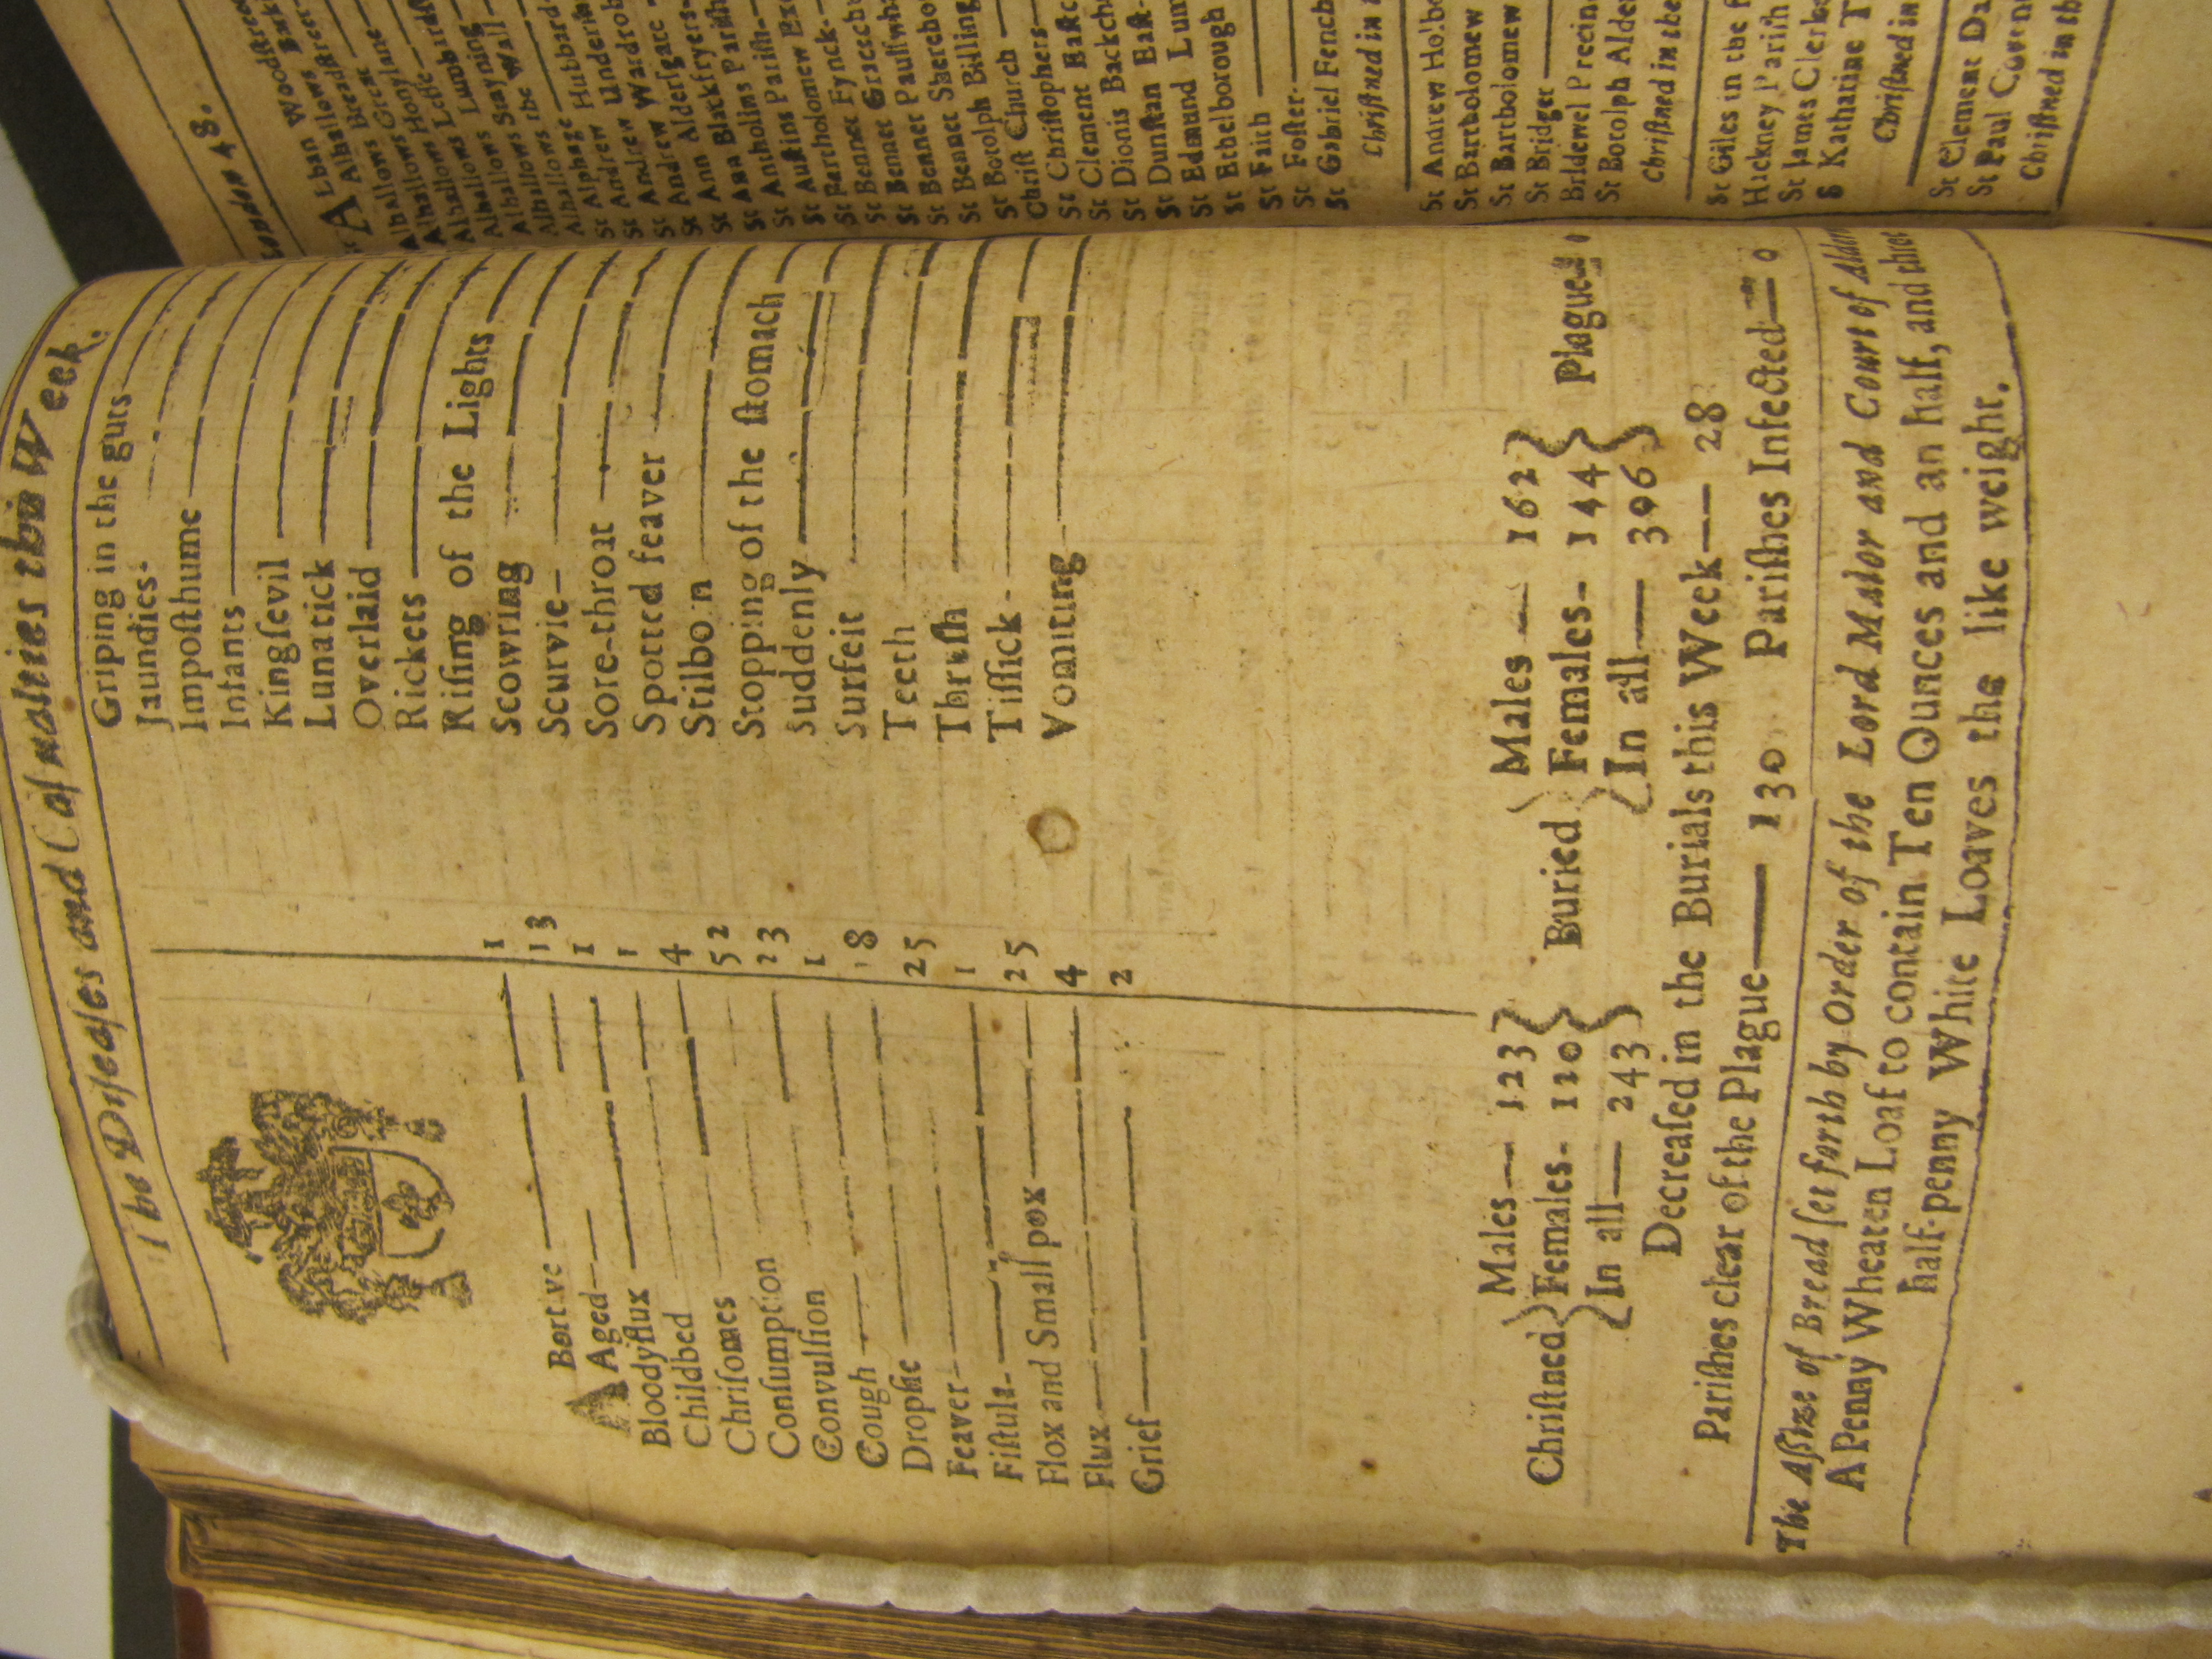 The Diseases and Casualties this Week.
ABortive 1
Aged 13
Bloodyflux 1
Childbed 1
Chrisomes 4
Consumption 52
Convulsion 23
Cough 1
Dropsie 18
Feaver 25
Fistula 1
Flox and Small pox 25
Flux 4
Grief 2
Griping in the guts
Jaundies
Imposthume
Infants
Kingsevil
Lunatick
Overlaid
Rickets
Rising of the Lights
Scowring
Scurvie
Sore-throat
Spotted feaver
Stilborn
Stopping of the stomach
Suddenly
Surfeit
Teeth
Thrush
Tissick
Vomiting
Christned
Males— 123
Females- 120
In all— 243
Buried
Males — 162
Females- 144
In all— 306
Plague 0
Decreased in the Burials this Week— 28
Parishes clear of the Plague— 130 Parishes Infected— 0
The Assize of Bread set forth by Order of the Lord Maior and Court of
A Penny Wheaten Loaf to contain Ten Ounces and an half, and three
half-penny White Loaves the like weight.
London 48.
St ALban Woodstreet
Alhallows Bark
Alhallows Breadstreet
Alhallows Great
Alhallows Honylane
Alhallows Lesse
Alhallows Lumbardst
Alhallows Stayning
Alhallows the Wall
St Alphage
St Andrew Hubbard
St Andrew Undersh
St Andrew Wardrob
St Ann Aldersgate
St Ann Blackfryers
St Antholins Parish
St Austins Parish
St Bartholomew Exc
St Bennet Fynck
St Bennet Gracech
St Bennet Paulswh
St Bennet Sherehog
St Botolph Billing
Christ Church
St Christophers
St Clement Eastc
St Dionis Backch
St Dunstan East
St Edmund Lum
St Ethelborough
St Faith
St Foster
St Gabriel Fench
Christned in
St Andrew Holbo
St Bartholomew
St Bartholomew
St Bridget
Bridewel Precin
St Botolph Alder
Christned in the
St Giles in the F
Hackney Parish
St James Clerk
St Katharine T
Christned in
St Clement Da
St Paul Coven
Christned in th